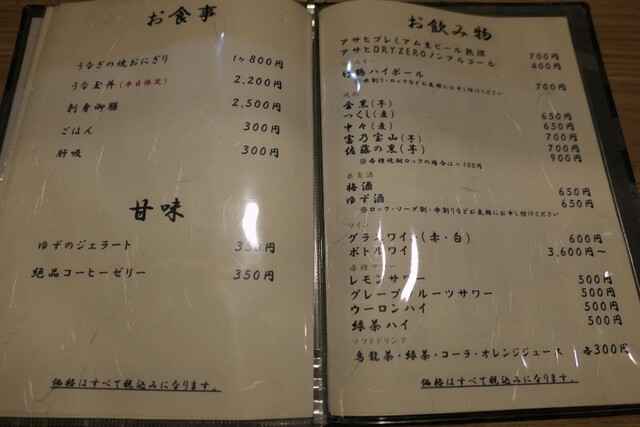 お食事
うなぎの焼おにぎり 1ヶ800円
うな玉丼(平日限定) 2,200円
刺身御膳 2,500円
ごはん 300円
肝吸 300円
甘味
ゆずのジェラート 350円
絶品コーヒーゼリー 350円
価格はすべて税込みになります。
お飲み物
アサヒプレミアム生ビール熟撰 700円
アサヒDRYZEROノンアルコール 400円
竹鶴ハイボール 700円
※水割り・ロックなどお気軽にお申し付けください
焼酎
金黒(芋) 650円
つくし(麦) 650円
中々(麦) 700円
宝乃宝山(芋) 700円
佐藤の黒(芋) 900円
※各種焼酎ロックの場合は+100円
果実酒
梅酒 650円
ゆず酒 650円
※ロック・ソーダ割・水割りなどお気軽にお申し付けください
ワイン
グラスワイン(赤・白) 600円
ボトルワイン 3,600円〜
各種サワー
レモンサワー 500円
グレープフルーツサワー 500円
ウーロンハイ 500円
緑茶ハイ 500円
ソフトドリンク
烏龍茶・緑茶・コーラ・オレンジジュース 各300円
価格はすべて税込みになります。